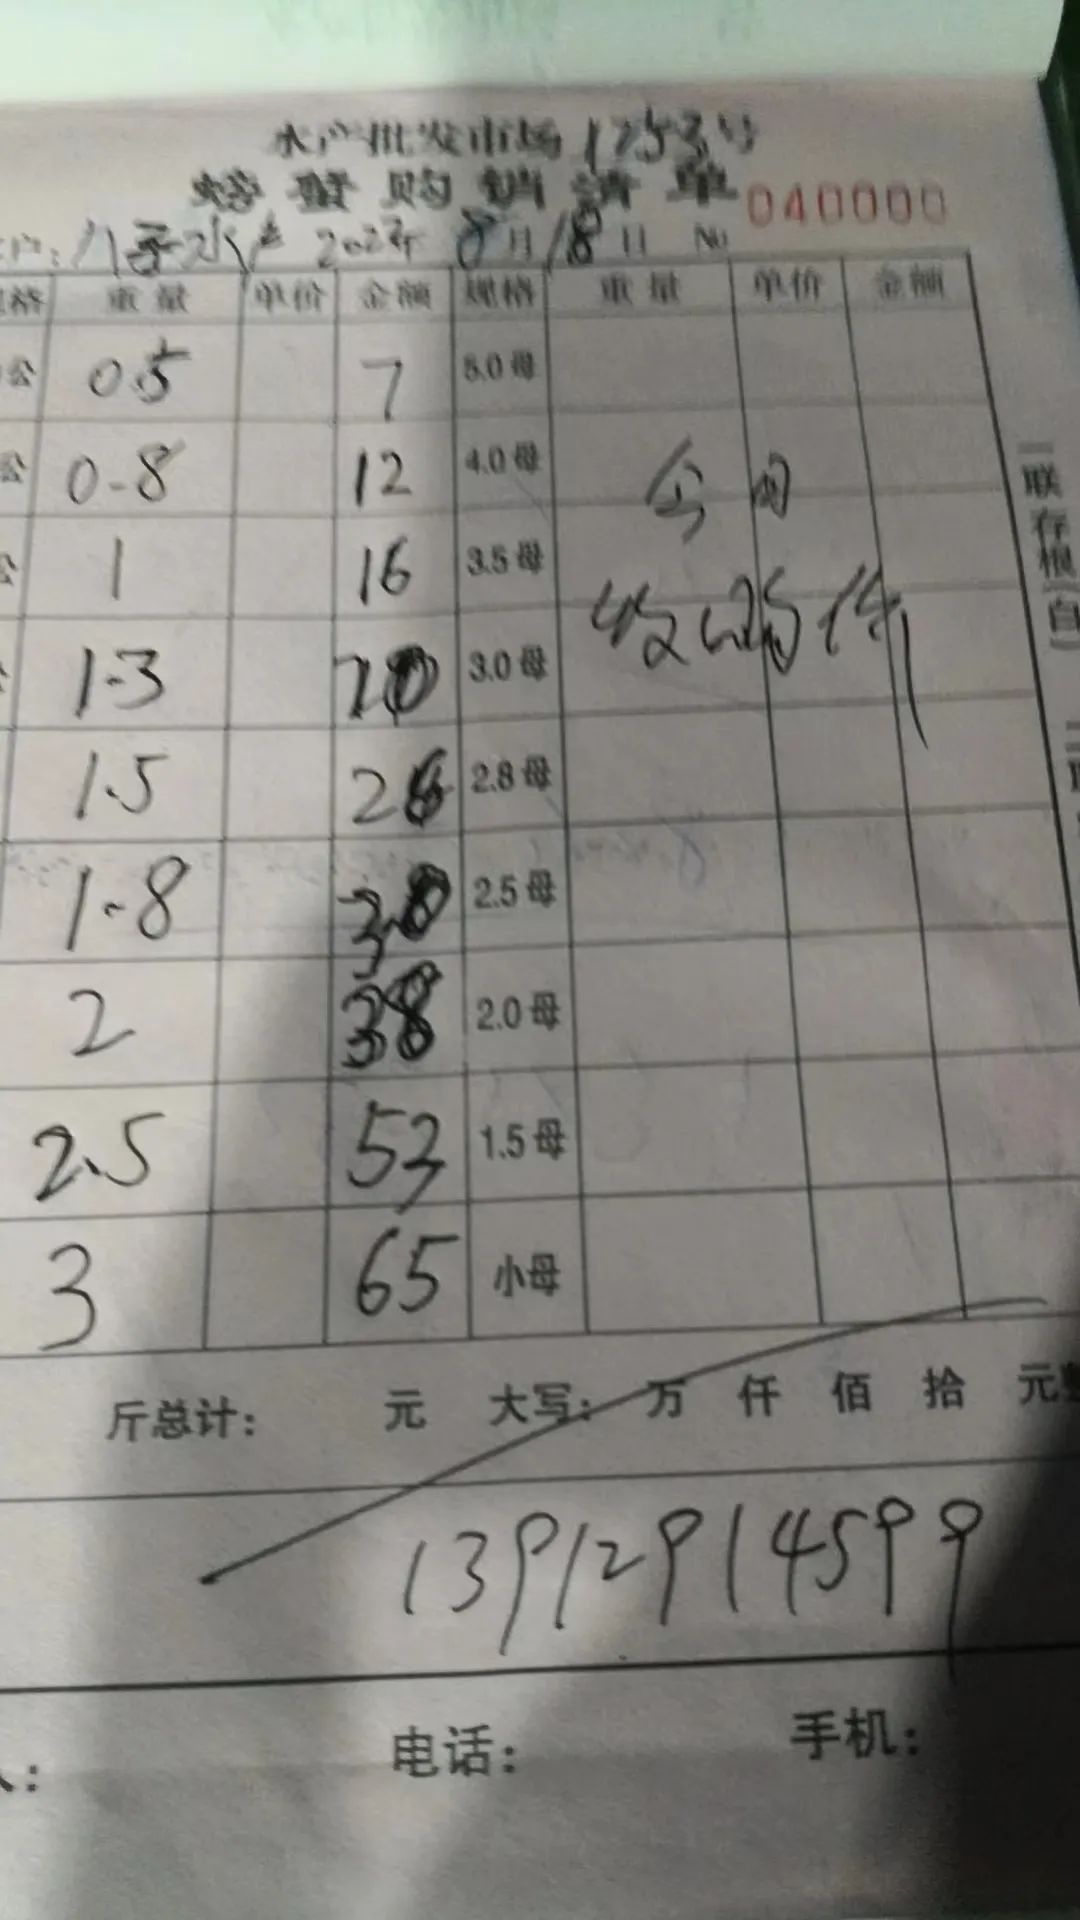 水产批发市场1253号
螃蟹购销清单 040000
8月18日 No
格 重量 单价 金额 规格 重量 单价 金额
公 0.5 7 5.0母
公 0-8 12 4.0母 今日
公 1 16 3.5母
1-3 20 3.0母 收购价
1.5 26 2.8母
1-8 30 2.5母
2 38 2.0母
2.5 53 1.5母
3 65 小母
斤总计: 元 大写: 万 仟 佰 拾 元
13912914599
电话: 手机:
联存根(白)